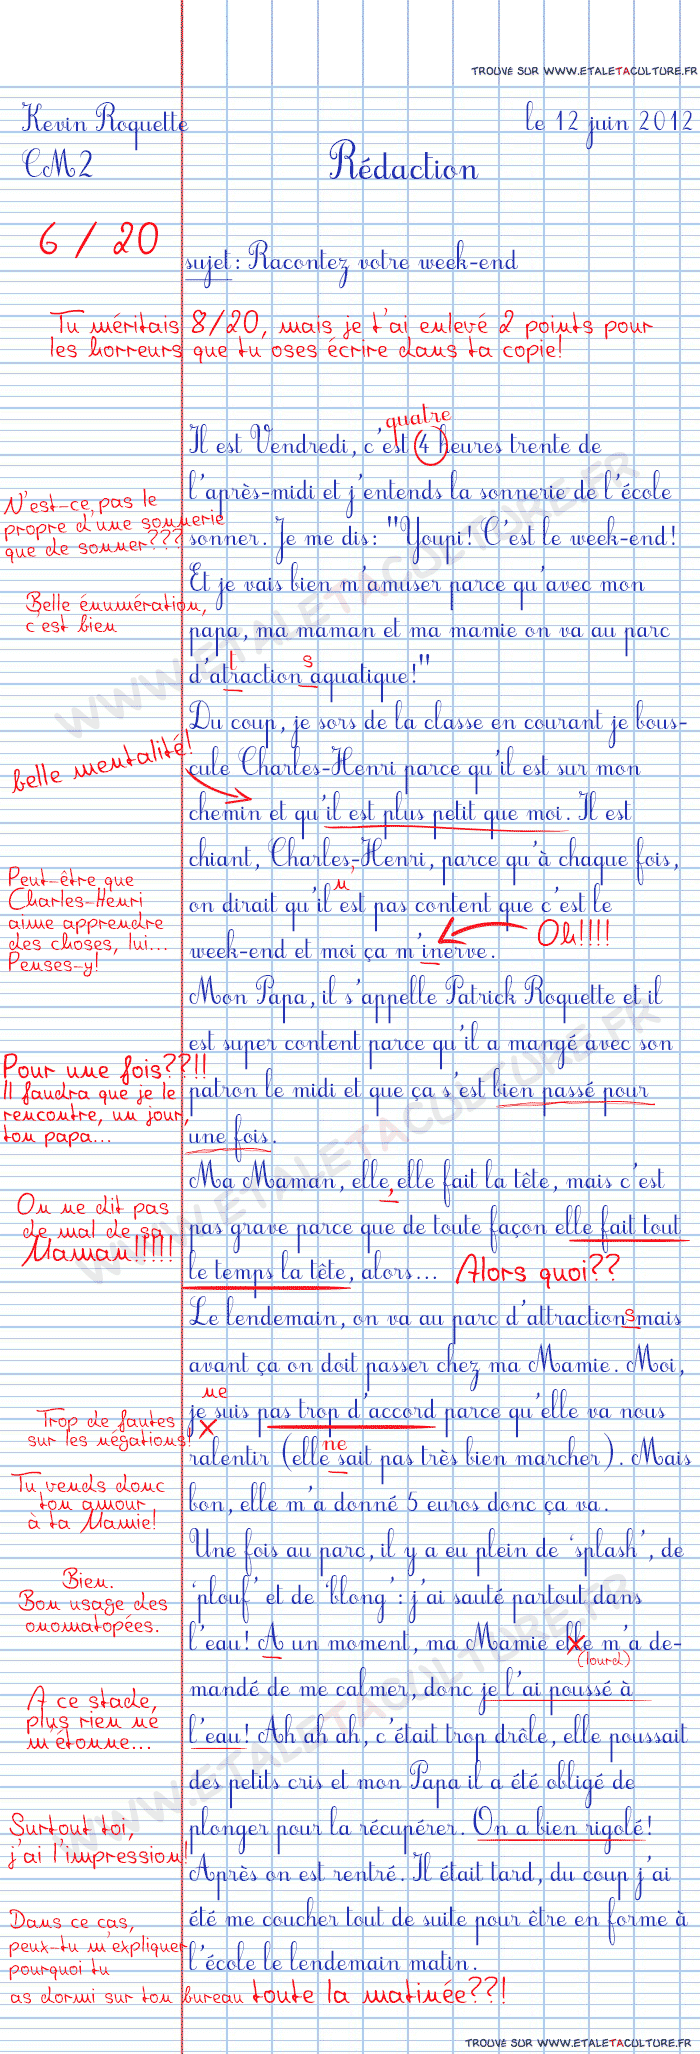 TROUVÉ SUR WWW.ETALETACULTURE.FR
Kevin Roquette
le 12 juin 2012
CM2
Rédaction
6 / 20
sujet : Racontez votre week-end
Tu méritais 8/20, mais je t'ai enlevé 2 points pour
les horreurs que tu oses écrire dans ta copie!
quatre
Il est Vendredi, c'est 4 heures trente de
l'après-midi et j'entends la sonnerie de l'école
N'est-ce pas le
propre d'une sonnerie
que de sonner???
sonner. Je me dis: "Youpi! C'est le week-end!
Et je vais bien m'amuser parce qu'avec mon
Belle énumération,
c'est bien
papa, ma maman et ma mamie on va au parc
t s
d'atraction aquatique!"
Du coup, je sors de la classe en courant je bous-
belle mentalité!
cule Charles-Henri parce qu'il est sur mon
chemin et qu'il est plus petit que moi. Il est
chiant, Charles-Henri, parce qu'à chaque fois,
Peut-être que
Charles-Henri
aime apprendre
des choses, lui...
Penses-y!
on dirait qu'il est pas content que c'est le
Oh!!!!
week-end et moi ça m'inerve.
Mon Papa, il s'appelle Patrick Roquette et il
est super content parce qu'il a mangé avec son
Pour une fois??!!
Il faudra que je le
rencontre, un jour,
ton papa...
patron le midi et que ça s'est bien passé pour
une fois.
Ma Maman, elle, elle fait la tête, mais c'est
On ne dit pas
de mal de sa
Maman!!!!!
pas grave parce que de toute façon elle fait tout
le temps la tête, alors... Alors quoi??
Le lendemain, on va au parc d'attractions mais
avant ça on doit passer chez ma Mamie. Moi,
ne
je suis pas trop d'accord parce qu'elle va nous
Trop de fautes
sur les négations!
ne
ralentir (elle sait pas très bien marcher). Mais
Tu vends donc
ton amour
à ta Mamie!
bon, elle m'a donné 5 euros donc ça va.
Une fois au parc, il y a eu plein de 'splash', de
Bien.
Bon usage des
onomatopées.
'plouf' et de 'blong' : j'ai sauté partout dans
l'eau! A un moment, ma Mamie elle m'a de-
(lourd)
mandé de me calmer, donc je l'ai poussé à
A ce stade,
plus rien ne
m'étonne...
l'eau! Ah ah ah, c'était trop drôle, elle poussait
des petits cris et mon Papa il a été obligé de
Surtout toi,
j'ai l'impression!
plonger pour la récupérer. On a bien rigolé!
Après on est rentré. Il était tard, du coup j'ai
été me coucher tout de suite pour être en forme à
l'école le lendemain matin.
Dans ce cas,
peux-tu m'expliquer
pourquoi tu
as dormi sur ton bureau toute la matinée??!
TROUVÉ SUR WWW.ETALETACULTURE.FR